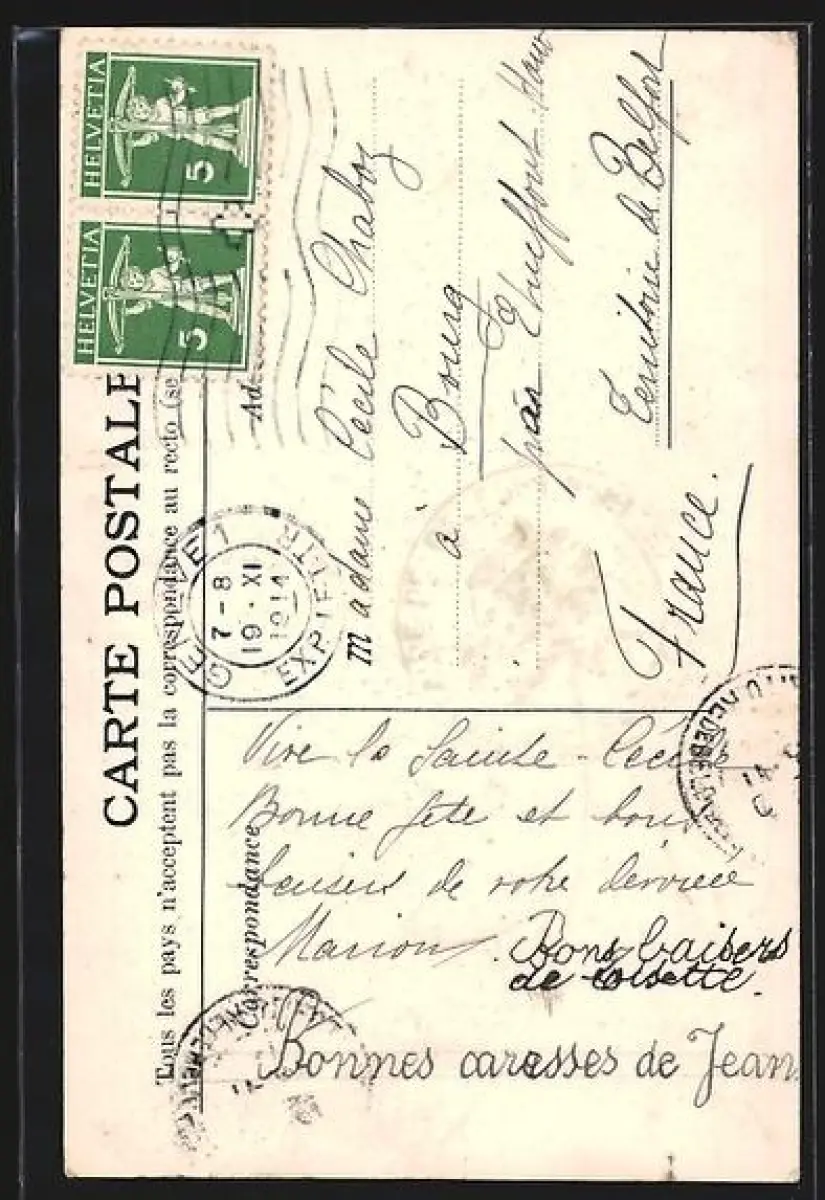 HELVETIA
5
HELVETIA
5
CARTE POSTALE
Tous les pays n'acceptent pas la correspondance au recto (se
Correspondance
Ad
GENÈVE 1
7-8
19.XI
1914
EXP. LETTR
madame Cécile Chaboz
à Bourg
par Etueffont Haut
Territoire de Belfort
France.
Vive la Sainte-Cécile
Bonne fête et bons
baisers de votre dévouée
Marion. Bons baisers
de
Bonnes caresses de Jean